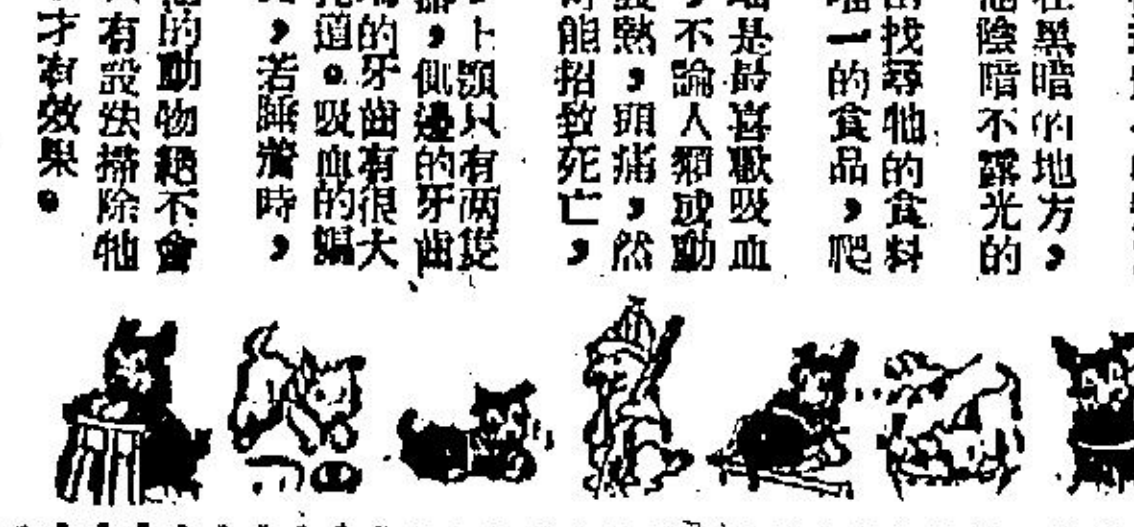 在黑暗的地方，
他陰暗不露光的
出找尋牠的食料
唯一的食品，爬
是最喜歡吸血
，不論人類或動
發熱，頭痛，然
可能招致死亡，
上顎只有两隻
，側邊的牙齒
的牙齒有很大
道。吸血的蝙
，若睡着時，
的動物絕不會
有設法掃除牠
才有效果。